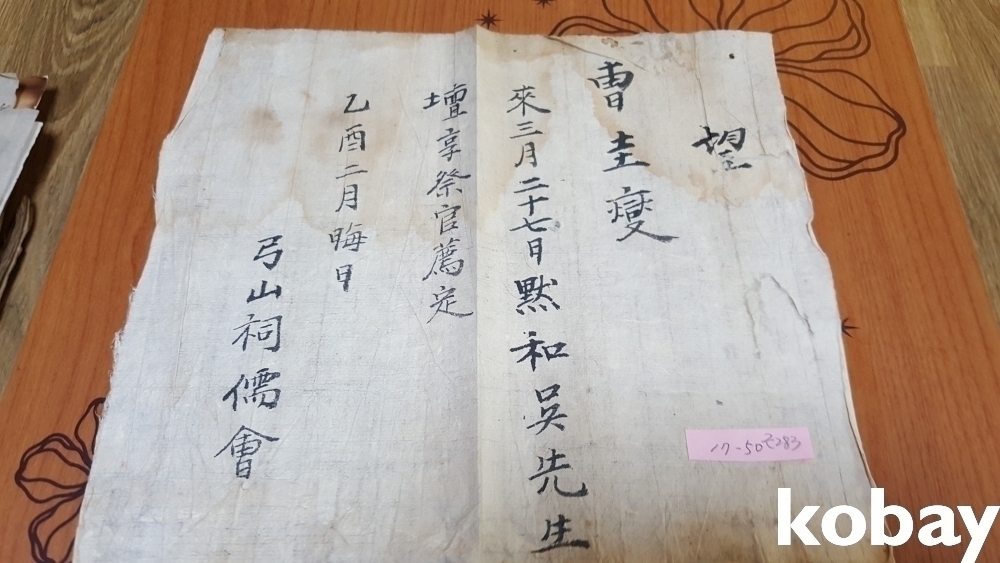 望
曺圭燮
來三月二十七日黙和吳先生
壇享祭官薦定
乙酉二月晦日
弓山祠儒會
17-50
kobay